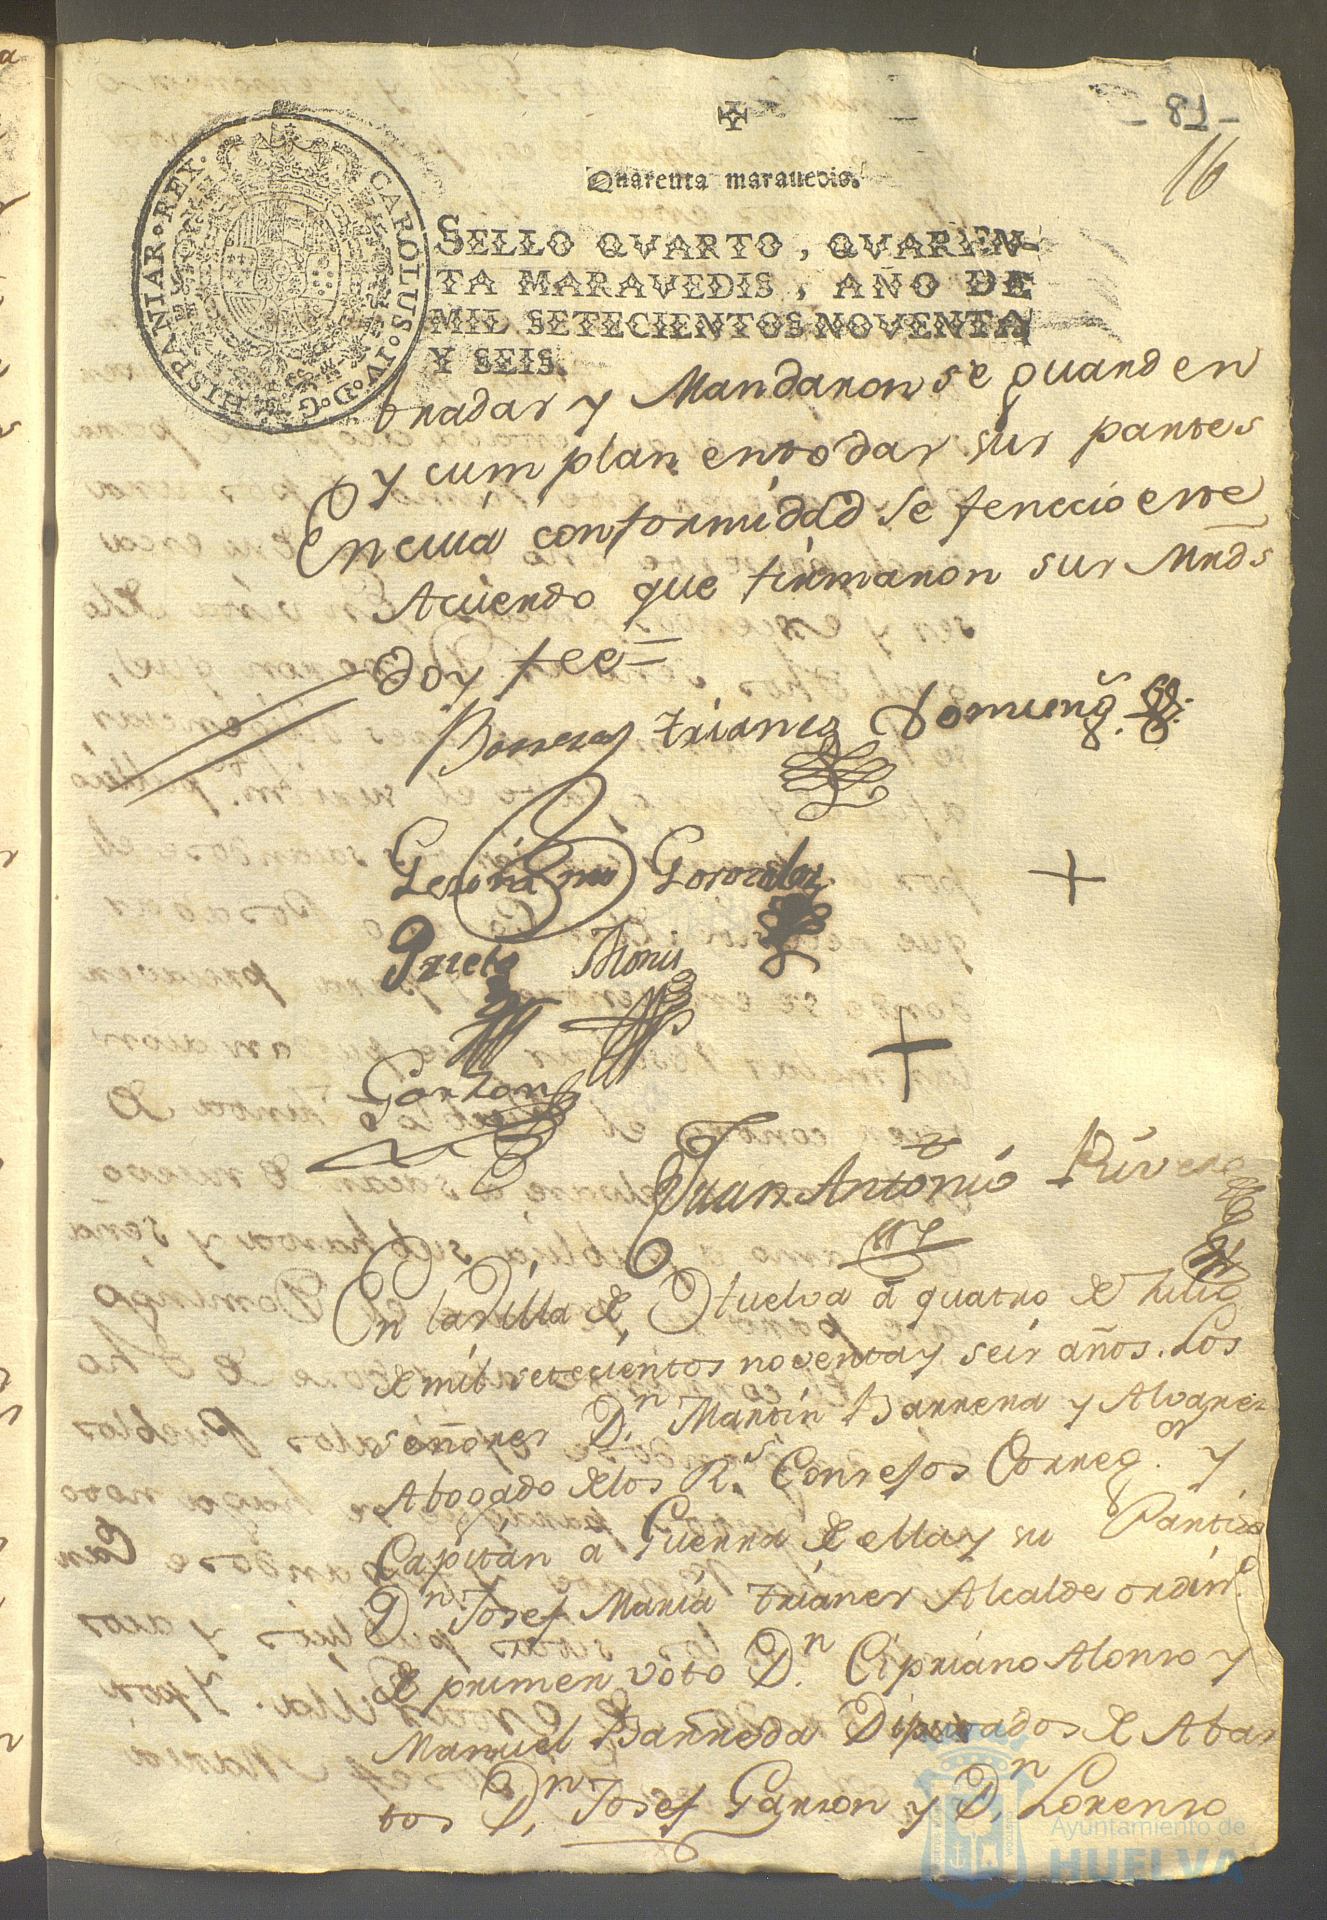 - 81 -
16
Quarenta maravedis.
SELLO QVARTO, QVAREN-
TA MARAVEDIS, AÑO DE
MIL SETECIENTOS NOVENTA
Y SEIS.
CAROLUS·IV·D·G·HISPANIAR·REX·
bradas y Mandaron se guarden
y cumplan entodas sus partes
En cuia conformidad se fenecio este
Acuerdo que firmaron sus Mrds
doy fee =
Barrera Trianes Doming.
Geronimo Gorozabal
Prieto
Garzon
Juan Antonio Rivera
En la Villa de Huelva à quatro de Julio
de mil setecientos noventa y seis años. Los
señores Dn. Martin Barrera y Alvarez
Abogado delos Rs. Consejos Correg.or y
Capitan a Guerra de ella y su Partido
Dn. Josef Maria Trianes Alcalde ordin.o
de primer voto Dn. Cipriano Alonso y
Manuel Barreda Diputados de Abas
tos Dn. Josef Garzon y Dn. Lorenso
Ayuntamiento de
HUELVA